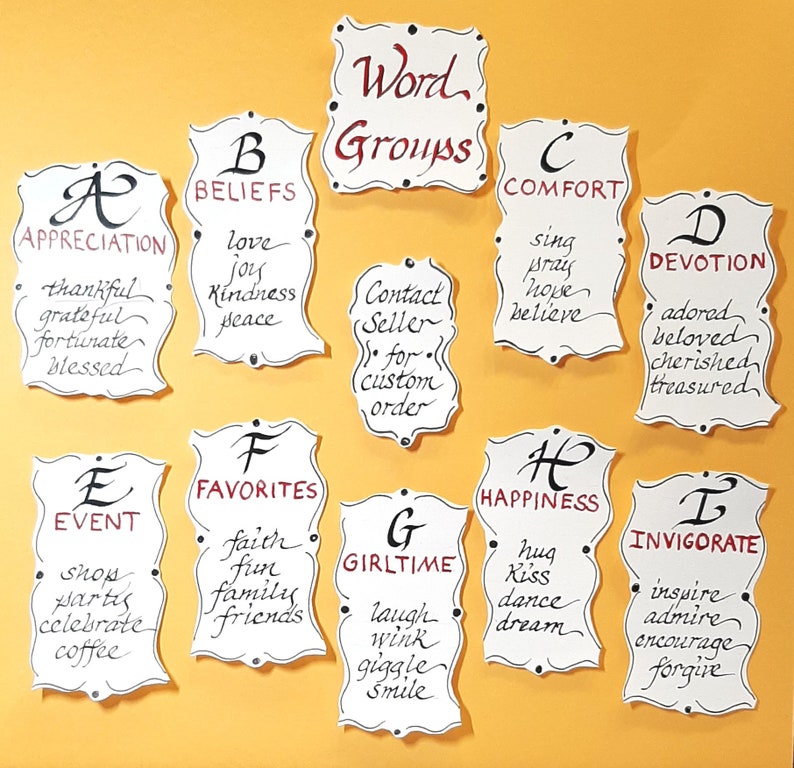 Word
Groups
A
APPRECIATION
thankful
grateful
fortunate
blessed
B
BELIEFS
love
joy
kindness
peace
C
COMFORT
sing
pray
hope
believe
D
DEVOTION
adored
beloved
cherished
treasured
Contact
Seller
for
custom
order
E
EVENT
shop
party
celebrate
coffee
F
FAVORITES
faith
fun
family
friends
G
GIRLTIME
laugh
wink
giggle
smile
H
HAPPINESS
hug
kiss
dance
dream
I
INVIGORATE
inspire
admire
encourage
forgive